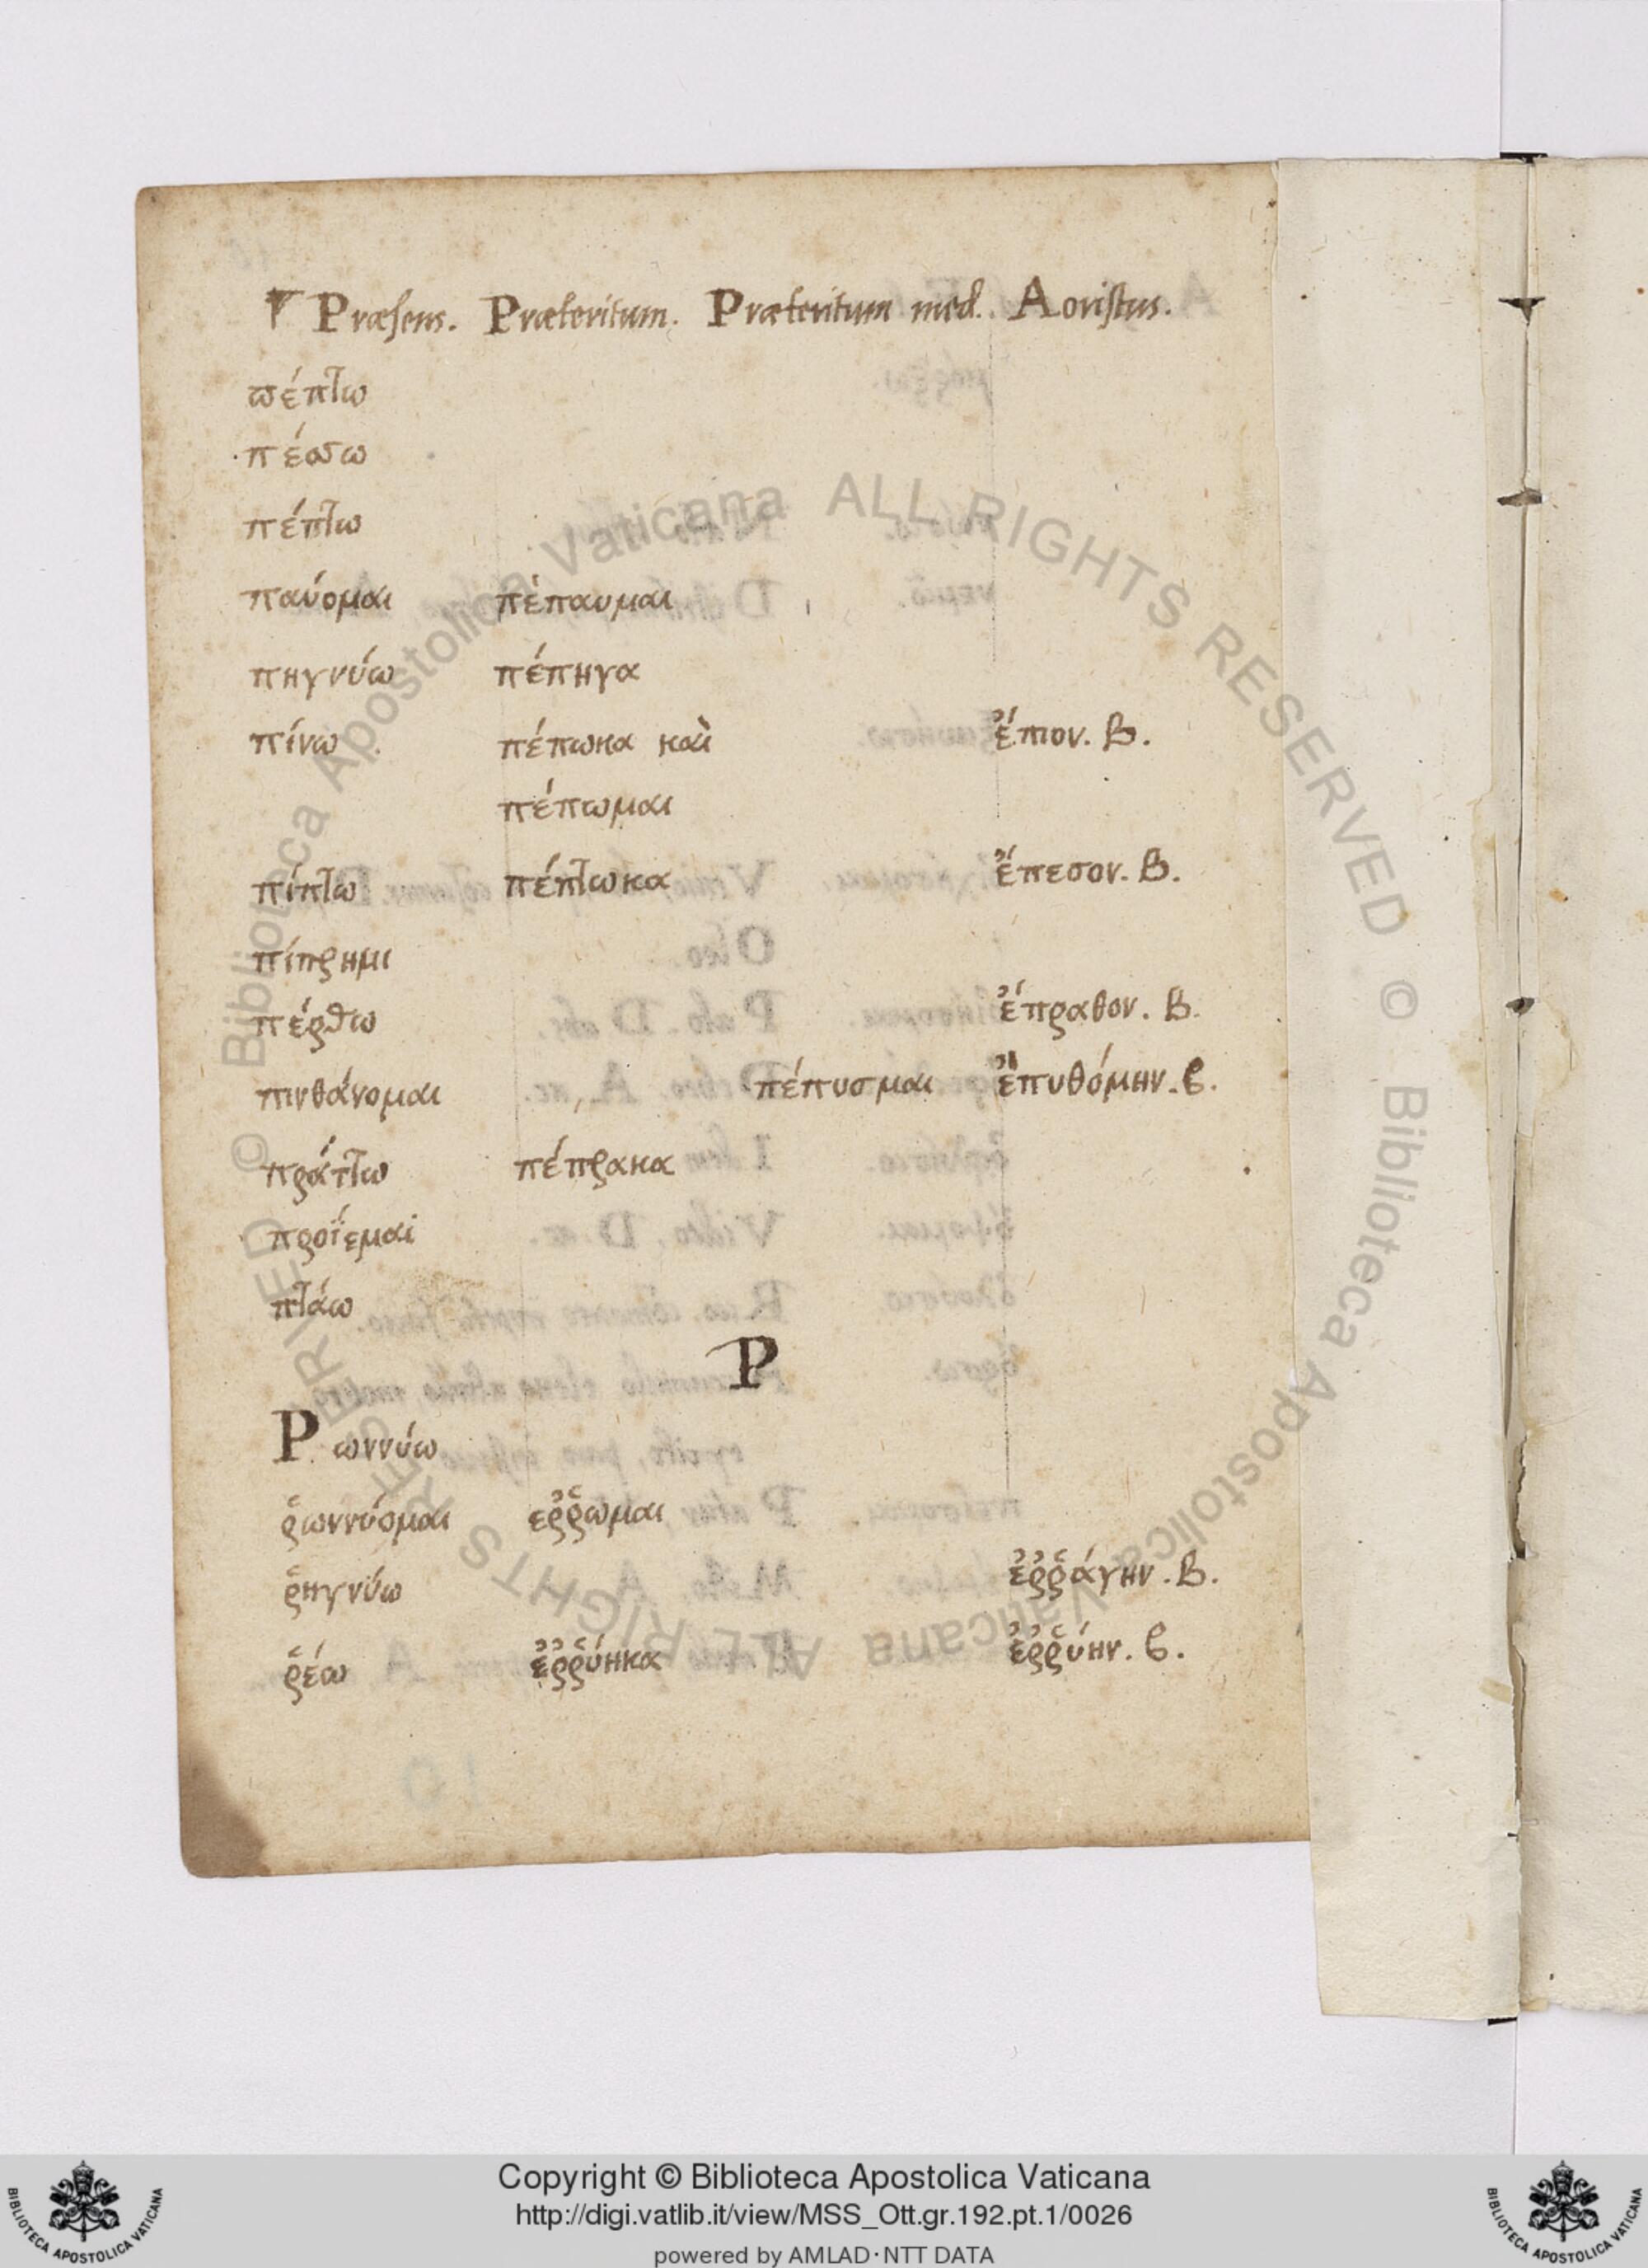 Præsens. Præteritum. Præteritum med. Aoristus.
πέπτω
πέσσω
πέπτω
παύομαι πέπαυμαι
πηγνύω πέπηγα
πίνω πέπωκα καὶ ἔπιον. B.
πέπωμαι
πίπτω πέπτωκα ἔπεσον. B.
πίπρημι
πέρθω ἔπραθον. B.
πυνθάνομαι πέπυσμαι ἐπυθόμην. β.
πράττω πέπρακα
προΐεμαι
πτάω
Ρ
Ρωννύω
ῥωννύομαι ἐῤῥωμαι
ῥηγνύω ἐῤῥάγην. B.
ῥέω ἐῤῥύηκα ἐῤῥύην. β.
© Biblioteca Apostolica Vaticana ALL RIGHTS RESERVED © Biblioteca Apostolica Vaticana ALL RIGHTS RESERVED
Copyright © Biblioteca Apostolica Vaticana
http://digi.vatlib.it/view/MSS_Ott.gr.192.pt.1/0026
powered by AMLAD·NTT DATA
BIBLIOTECA APOSTOLICA VATICANA
BIBLIOTECA APOSTOLICA VATICANA